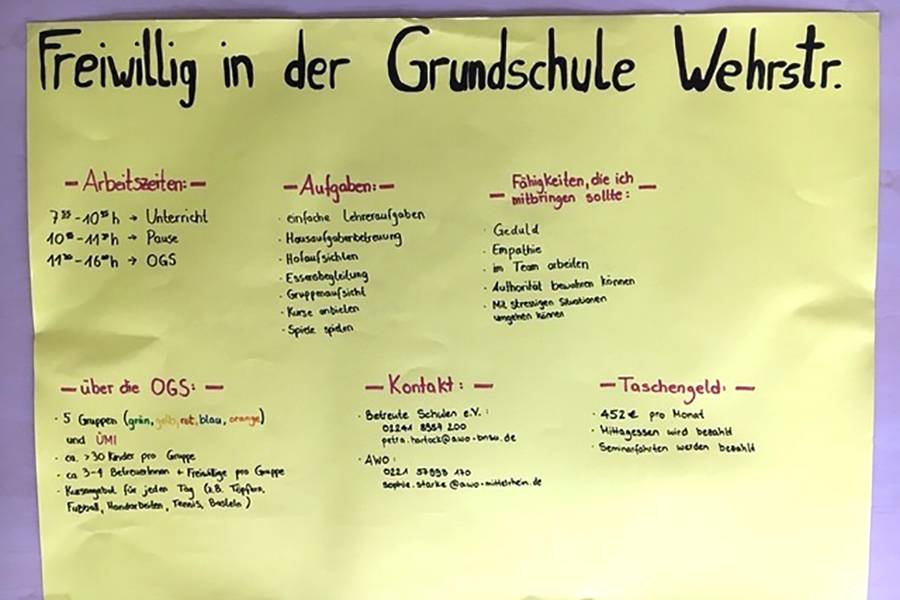 Freiwillig in der Grundschule Wehrstr.
Arbeitszeiten:
7 - 10 h → Unterricht
10 - 11 h → Pause
11 - 16 h → OGS
Aufgaben:
· einfache Lehreraufgaben
· Hausaufgabenbetreuung
· Hofaufsichten
· Essensbegleitung
· Gruppenaufsicht
· Kurse anbieten
· Spiele spielen
Fähigkeiten, die ich
mitbringen sollte:
· Geduld
· Empathie
· im Team arbeiten
· Authorität bewahren können
· Mit stressigen Situationen
umgehen können
über die OGS:
· 5 Gruppen (grün, gelb, rot, blau, orange)
und ÜMI
· ca. >30 Kinder pro Gruppe
· ca 3-4 BetreuerInnen + Freiwillige pro Gruppe
· Kursangebot für jeden Tag (z.B. Töpfern,
Fußball, Handarbeiten, Tennis, Basteln)
Kontakt:
· Betreute Schulen e.V.:
· AWO:
0221 57998 170
sophie.starke@awo-mittelrhein.de
Taschengeld:
· 452€ pro Monat
· Mittagessen wird bezahlt
· Seminarfahrten werden bezahlt